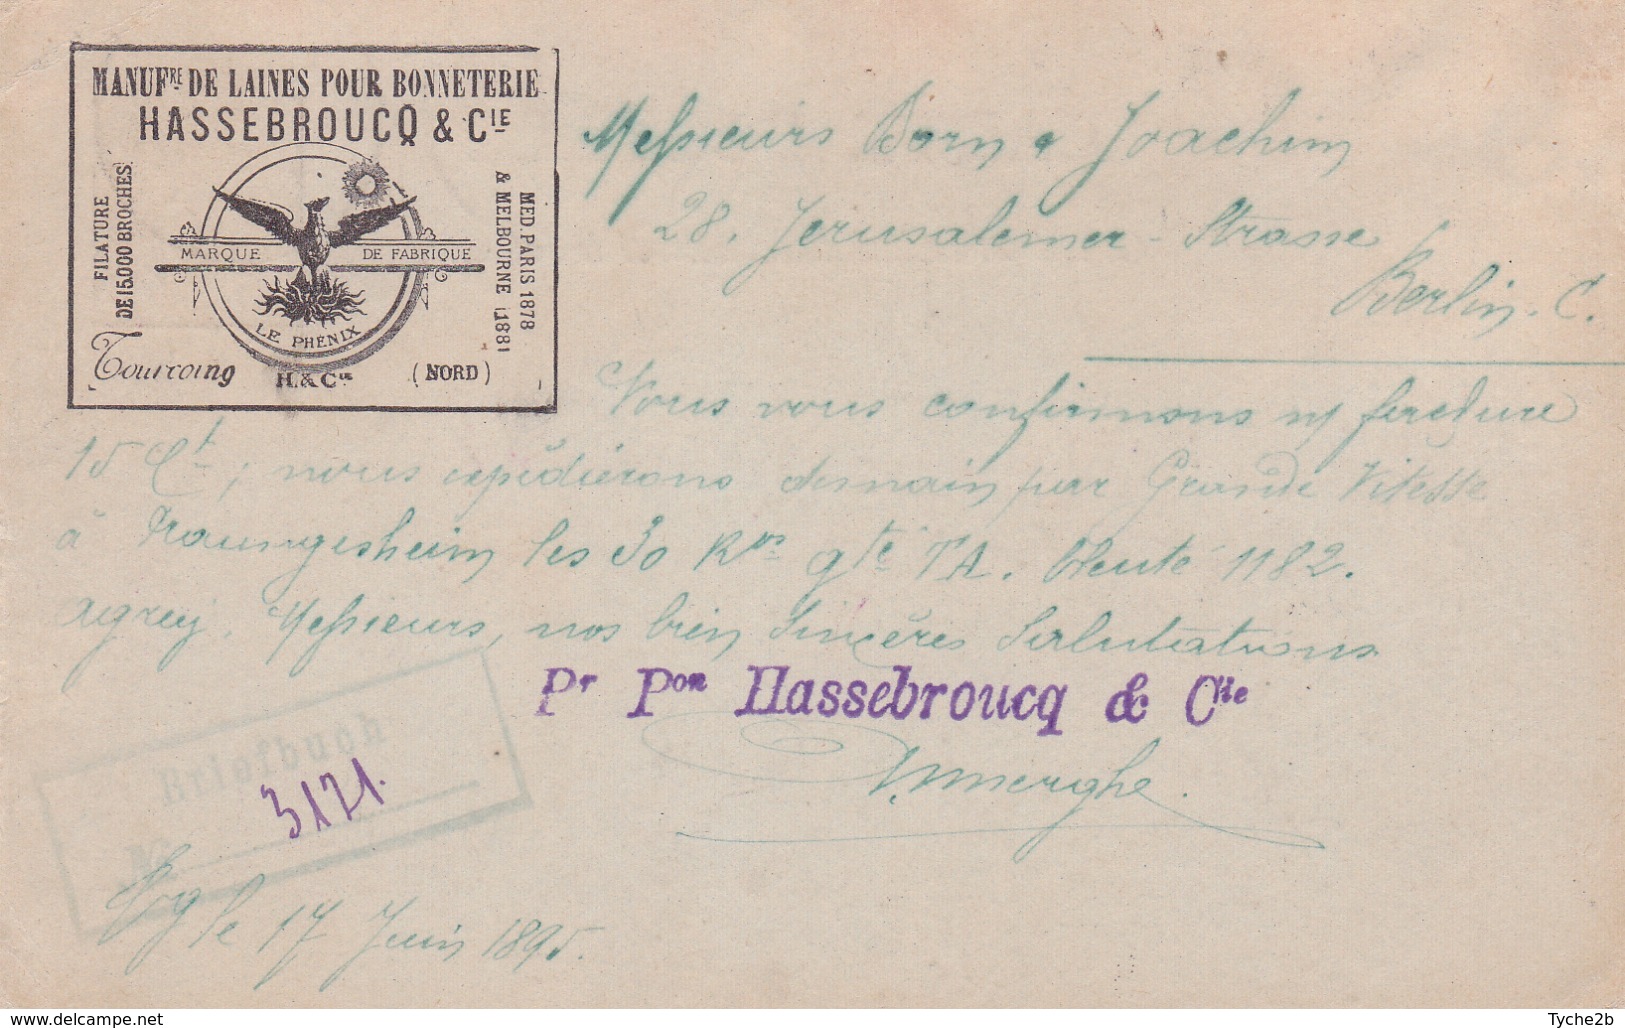 MANUFRE DE LAINES POUR BONNETERIE
HASSEBROUCQ & CIE
FILATURE
DE 15.000 BROCHES
MED. PARIS 1878
& MELBOURNE 1881
MARQUE DE FABRIQUE
LE PHÉNIX
Tourcoing H. & Cie (NORD)
Messieurs Born & Joachim
28, Jerusalemer-Strasse
Berlin. C.
Nous vous confirmons n/ facture
15 Ct; nous expédierons demain par Grande Vitesse
à les 30 Kos qté TA. 1182.
Agréez, Messieurs, nos bien sincères Salutations
Pr Pon Hassebroucq & Cie
Briefbuch
3171.
Tg le 17 Juin 1895.
delcampe.net
Tyche2b